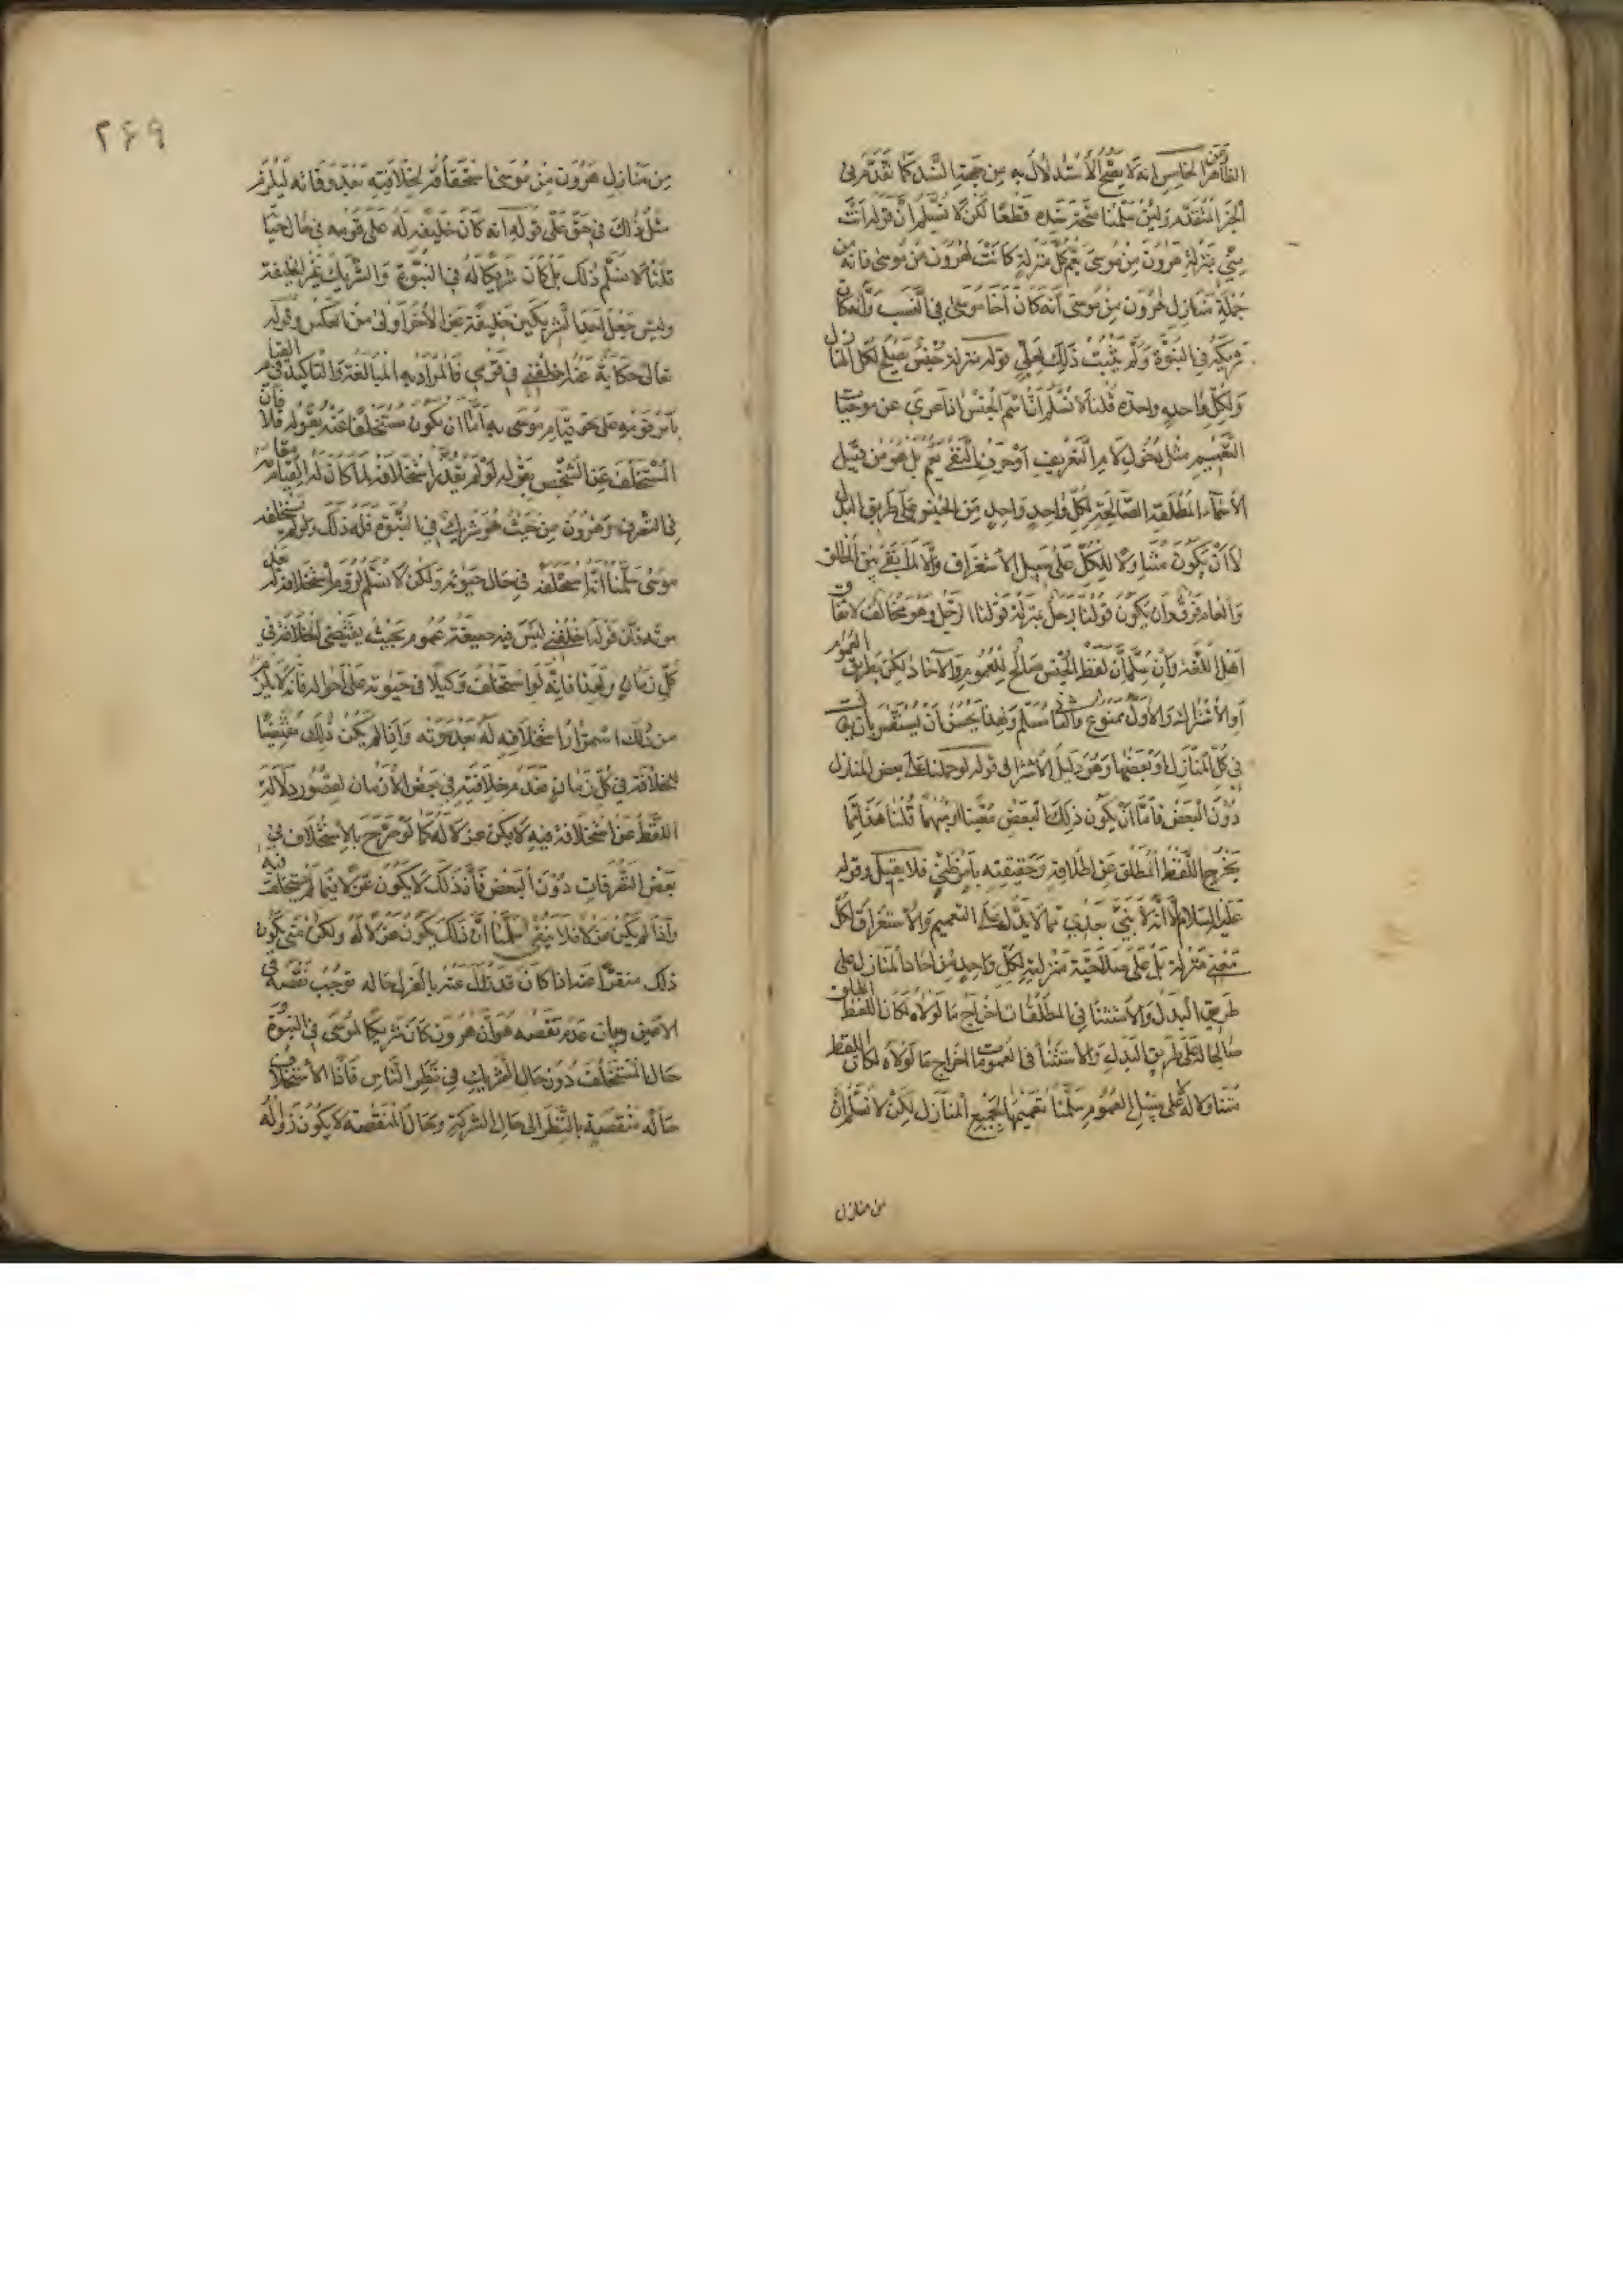 الظاهر الخامس انه لا يصح الاستدلال به من جهة السند كما تقدم في
الخبر المتقدم ولئن سلمنا صحة سنده قطعا لكن لا نسلم ان قوله انت
مني بمنزلة هرون من موسى يعم كل منزلة كانت لهرون من موسى فانه من
جملة منازل هرون من موسى انه كان اخا موسى في النسب وانه كان
شريكه في النبوة ولم يثبت ذلك لعلي قوله منزلة جنس يصلح لكل المنازل
ولكل واحد واحده قلنا لا نسلم ان اسم الجنس اذا عري عن موجبات
التعميم مثل دخول لام التعريف او حرف النفي يعم بل هو من قبيل
الاسماء المطلقة الصالحة لكل واحد واحد من الجنس على طريق البدل
لا ان يكون متناولا للكل على سبيل الاستغراق والا لما بقي بين المطلق
والعام فرق وان يكون قولنا رجل بمنزلة قولنا الرجل وهو مخالف لاتفاق
اهل اللغة وان سلم ان لفظ الجنس صالح للعموم والآحاد لكن بطريق العموم
او الاشتراك والاول ممنوع والثاني مسلم ولهذا يحسن ان يستفسر
في كل المنازل او بعضها وهو دليل الاشتراك قوله لو حملناه على بعض المنازل
دون البعض فاما ان يكون ذلك البعض معينا او مبهما قلنا هذا انما
يخرج اللفظ المطلق عن اطلاقه وحقيقته بامر ظني فلا يقبل وقوله
عليه السلام الا انه لا نبي بعدي مما لا يدل على التعميم والاستغراق لكل
معنى منزلة بل على صلاحية منزلة لكل واحد من احاد المنازل على
طريق البدل والاستثنا في المطلقات اخراج ما لولاه لكان اللفظ المطلق
صالحا له على طريق البدل والاستثنا في العمومات اخراج ما لولاه لكان اللفظ
متناولا له على سبيل العموم سلمنا تعميمها لجميع المنازل لكن لا نسلم ان
من منازل
۲۶۹
من منازل هرون من موسى استحقاقه لخلافته بعد وفاته ليلزم
مثل ذلك في حق علي قوله انه كان خليفة له على قومه في حال حياته
قلنا لا نسلم ذلك بل كان شريكا له في النبوة والشريك غير الخليفة
وليس جعل احد الشريكين خليفة عن الآخر اولى من العكس وقوله
تعالى حكاية عنه اخلفني في قومي فالمراد به المبالغة والتاكيد في القيام
بامر قومه على نحو قيام موسى به اما ان يكون مستخلفا عنه بقوله فلا فان
المستخلف عن الشخص بقوله لو لم يقدر استخلافه لما كان له القيام مقامه
في التصرف وهرون من حيث هو شريك في النبوة فله ذلك ولو لم يستخلفه
موسى سلمنا انه استخلفه في حال حيوته ولكن لا نسلم لزوم استخلافه له بعد
موته فان قوله اخلفني ليس فيه صيغة عموم بحيث يقتضي الخلافة في
كل زمان ولهذا فانه لو استخلف وكيلا في حيوته على احواله فانه لا يلزم
من ذلك استمرار استخلافه له بعد موته واذا لم يكن ذلك مقتضيا
للخلافة في كل زمان فعدم خلافته في بعض الازمان لقصور دلالة
اللفظ عن استخلافه فيه لا يكون عزلا له كما لو صرح بالاستخلاف في
بعض التصرفات دون البعض فان ذلك لا يكون عزلا فيما لم يستخلف فيه
واذا لم يكن عزلا فلا ينفر سلمنا ان ذلك يكون عزلا له ولكن متى يكون
ذلك منفرا عنه اذا كان قد زال عنه بالعزل حاله توجب نقصه في
الاعين وبيان عدم نقصه هو ان هرون كان شريكا لموسى في النبوة
حال المستخلف دون حال الشريك في نظر الناس فاذا الاستخلاف
حاله منقصة بالنظر الى حال الشركة وحال المنقصة لا يكون زواله